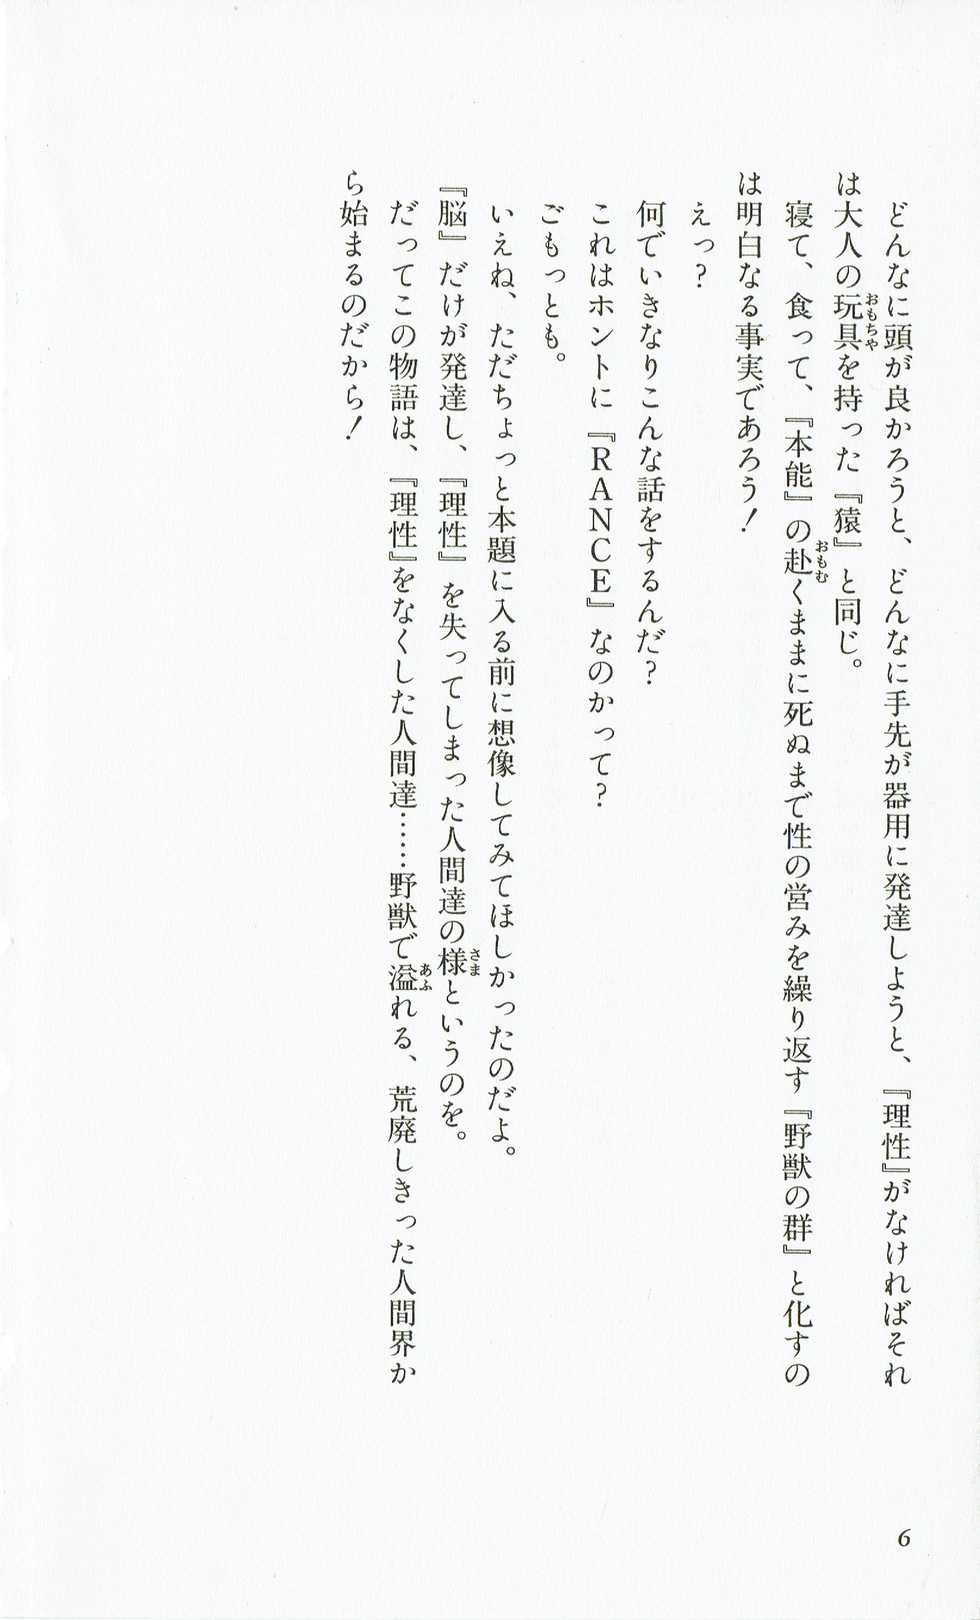 どんなに頭が良かろうと、どんなに手先が器用に発達しようと、『理性』がなければそれ
は大人の玩具を持った『猿』と同じ。
寝て、食って、『本能』の赴くままに死ぬまで性の営みを繰り返す『野獣の群』と化すの
は明白なる事実であろう！
えっ？
何でいきなりこんな話をするんだ？
これはホントに『ＲＡＮＣＥ』なのかって？
ごもっとも。
いえね、ただちょっと本題に入る前に想像してみてほしかったのだよ。
『脳』だけが発達し、『理性』を失ってしまった人間達の様というのを。
だってこの物語は、『理性』をなくした人間達……野獣で溢れる、荒廃しきった人間界か
ら始まるのだから！
6